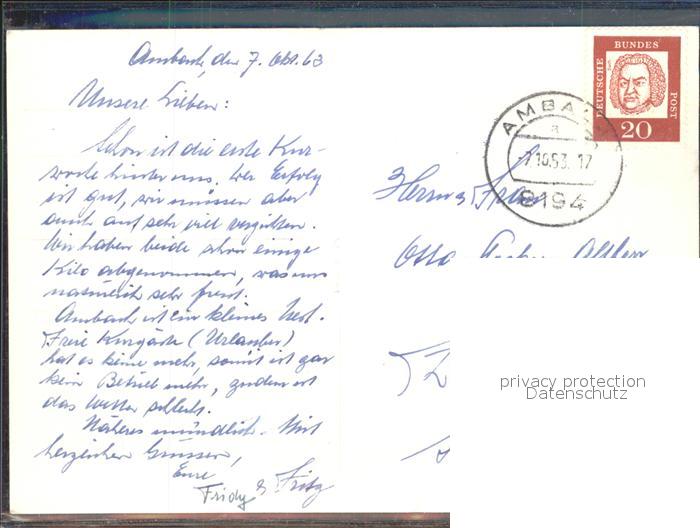 Ambach, den 7. Okt. 63
Unsere Lieben:
Schon ist die erste Kur-
woche hinter uns. Der Erfolg
ist gut, wir müssen aber
auch auf sehr viel verzichten.
Wir haben beide schon einige
Kilo abgenommen, was uns
natürlich sehr freut.
Ambach ist ein kleines Nest.
Freie Kurgäste (Urlauber)
hat es keine mehr, somit ist gar
kein Betrieb mehr, zudem ist
das Wetter schlecht.
Näheres mündlich. Mit
herzlichen Grüssen,
Eure
Fridy & Fritz
DEUTSCHE
BUNDES
POST
20
AMBACH
a
-7.10.63.17
8194
Herrn u. Frau
Otto
privacy protection
Datenschutz